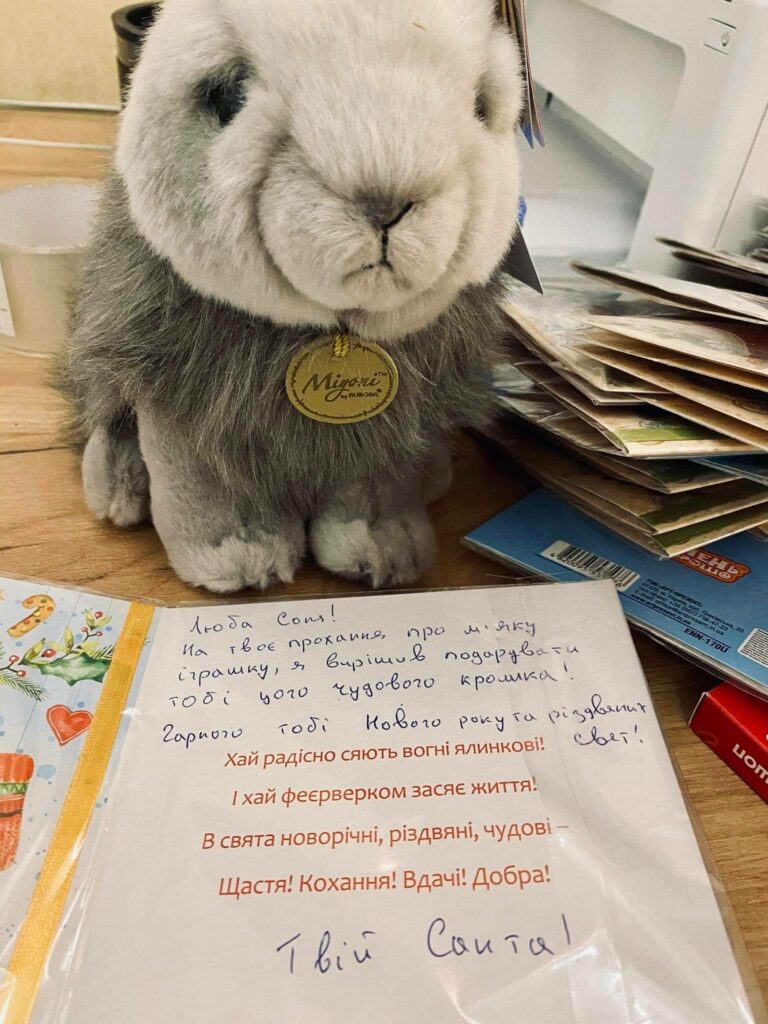 Miyoni™
by AURORA®
Люба Соня!
На твоє прохання про м'яку
іграшку, я вирішив подарувати
тобі цього чудового кролика!
Гарного тобі Нового року та різдвяних
свят!
Хай радісно сяють вогні ялинкові!
І хай феєрверком засяє життя!
В свята новорічні, різдвяні, чудові –
Щастя! Кохання! Вдачі! Добра!
Твій Санта!
ENN-170U